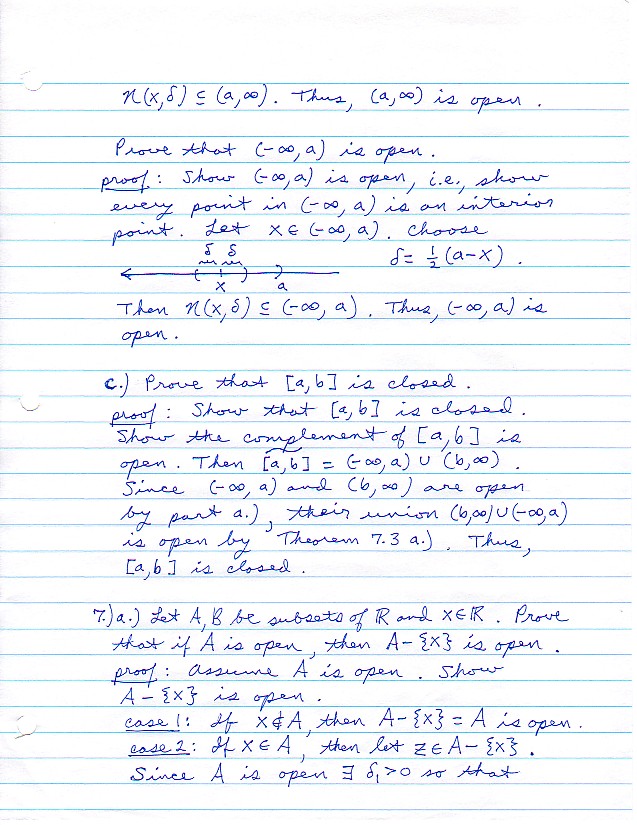 n(x,δ) ⊆ (a,∞). Thus, (a,∞) is open.
Prove that (-∞,a) is open.
proof: Show (-∞,a) is open, i.e., show
every point in (-∞,a) is an interior
point. Let x ∈ (-∞,a). Choose
δ δ
δ = ½(a-x).
x a
Then n(x,δ) ⊆ (-∞,a). Thus, (-∞,a) is
open.
c.) Prove that [a,b] is closed.
proof: Show that [a,b] is closed.
Show the complement of [a,b] is
open. Then [a,b]~ = (-∞,a) ∪ (b,∞).
Since (-∞,a) and (b,∞) are open
by part a.), their union (b,∞)∪(-∞,a)
is open by Theorem 7.3 a.). Thus,
[a,b] is closed.
7.)a.) Let A,B be subsets of ℝ and x∈ℝ. Prove
that if A is open, then A-{x} is open.
proof: Assume A is open. Show
A-{x} is open.
case 1: If x∉A, then A-{x} = A is open.
case 2: If x∈A, then let z∈A-{x}.
Since A is open ∃ δ₁>0 so that